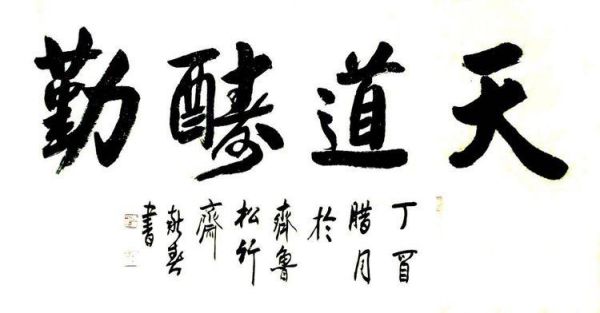 天道醻勤
丁酉
腊月
於
齊魯
松竹
齋
書